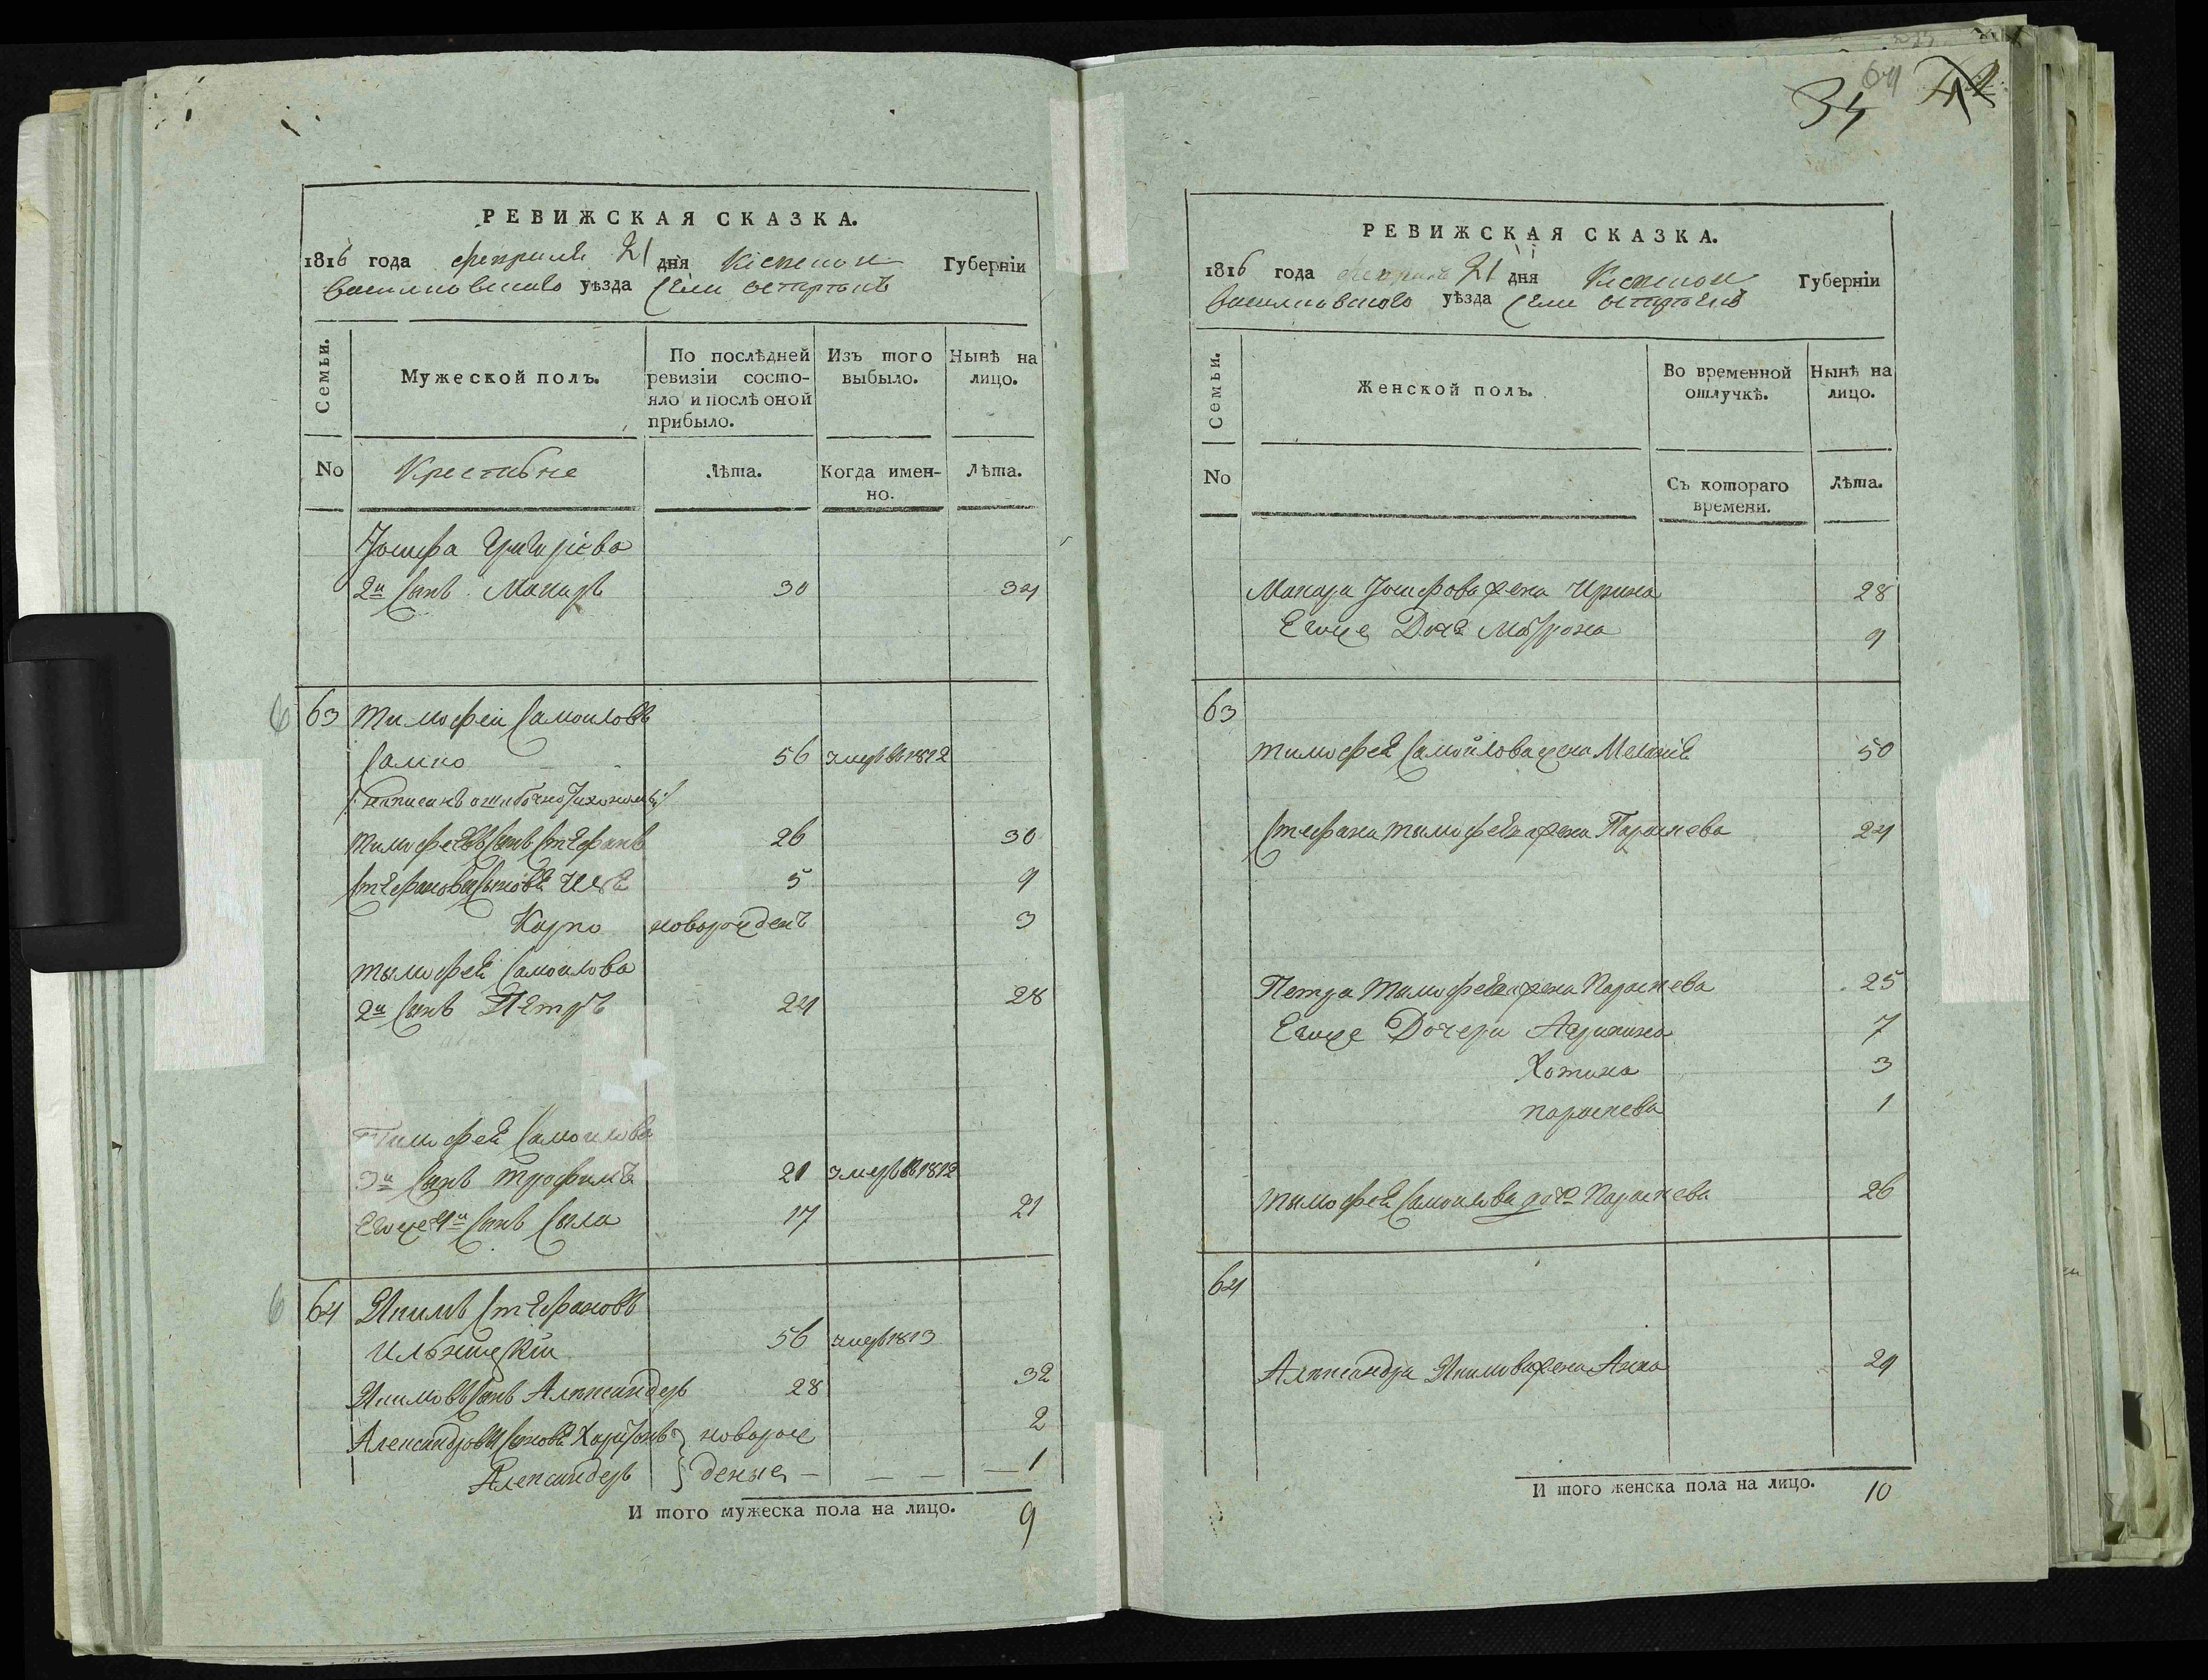 РЕВИЖСКАЯ СКАЗКА.
1816 года февраля 21 дня Кіевской Губерніи
Васильковского уѣзда
Семьи.
Мужеской полъ.
По послѣдней ревизіи состояло и послѣ оной прибыло.
Изъ того выбыло.
Нынѣ на лицо.
No
Крестьяне
Лѣта.
Когда именно.
Лѣта.
Іосифа Григоріева
2й Сынъ Макаръ 30 34
6 63 Тимофей Самоиловъ
Самко 56 умеръ въ 1812
/:написанъ ошибочно Тихономъ:/
Тимофеевъ Сынъ Стефанъ 26 30
Стефановы Сыновья 5 9
Карпо новорожденъ 3
Тимофея Самоилова
2й Сынъ Петръ 24 28
Тимофея Самоилова
3й Сынъ Трофимъ 21 умеръ въ 1812
Егоже 4й Сынъ Сыла 17 21
6 64 Якимъ Стефановъ
56 умеръ 1813
Якимовъ Сынъ Александеръ 28 32
Александровы Сыновья Харитонъ новорож 2
Александеръ деные — — — 1
И того мужеска пола на лицо. 9
64
34
РЕВИЖСКАЯ СКАЗКА.
1816 года февраля 21 дня Кіевской Губерніи
Васильковского уѣзда
Семьи.
Женской полъ.
Во временной отлучкѣ.
Нынѣ на лицо.
No
Съ котораго времени.
Лѣта.
Макара Іосифова жена Ирина 28
Егоже Дочь Матрона 9
63
Тимофея Самойлова жена Меланія 50
Стефана Тимофеева жена Параскева 24
Петра Тимофеева жена Параскева 25
Егоже Дочери 7
Хотина 3
Параскева 1
Тимофея Самоилова дочь Параскева 26
64
Александра Якимова жена Анна 29
И того женска пола на лицо. 10